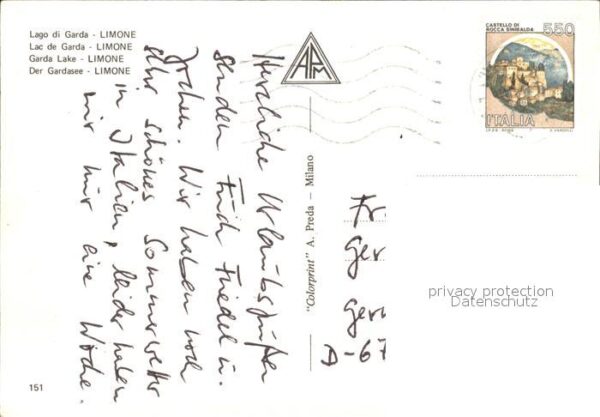 Lago di Garda - LIMONE
Lac de Garda - LIMONE
Garda Lake - LIMONE
Der Gardasee - LIMONE
APM
CASTELLO DI
ROCCA SINIBALDA
550
ITALIA
I.P.Z.S. - ROMA
E. VANGELLI
Herzliche Urlaubsgrüße
senden Euch Friedel u.
Jochen. Wir haben noch
sehr schönes Sommerwetter
in Italien, leider haben
wir nur eine Woche.
"Colorprint" A. Preda - Milano
Fr.
Ger
Ger
D-67
privacy protection
Datenschutz
151